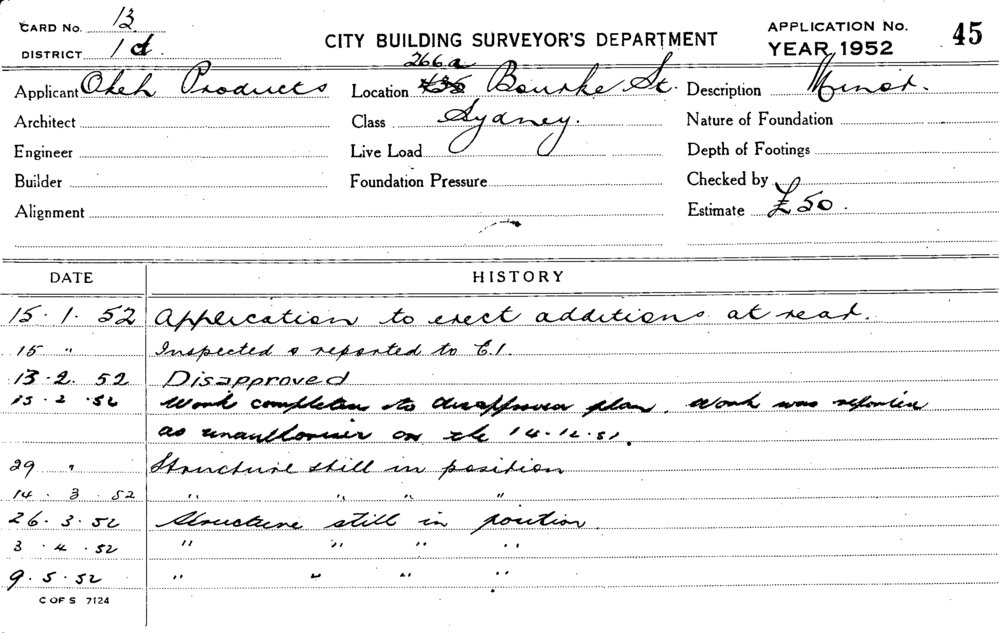 CARD No. 13
DISTRICT 1d.
CITY BUILDING SURVEYOR'S DEPARTMENT
APPLICATION No. 45
YEAR 1952
Applicant Okeh Products
Location 266a Bourke St.
Description Minor.
Architect
Class Sydney.
Nature of Foundation
Engineer
Live Load
Depth of Footings
Builder
Foundation Pressure
Checked by
Alignment
Estimate £50.
DATE HISTORY
15. 1. 52 Application to erect additions at rear.
15 " Inspected & reported to C.I.
13. 2. 52 Disapproved
15. 2. 52 Work completed to disapproved plan. Work was reported
as unauthorised on the 14.12.51.
29 " Structure still in position
14. 3. 52 " " " "
26. 3. 52 Structure still in position.
3. 4. 52 " " " "
9. 5. 52 " " " "
C OF S 7124